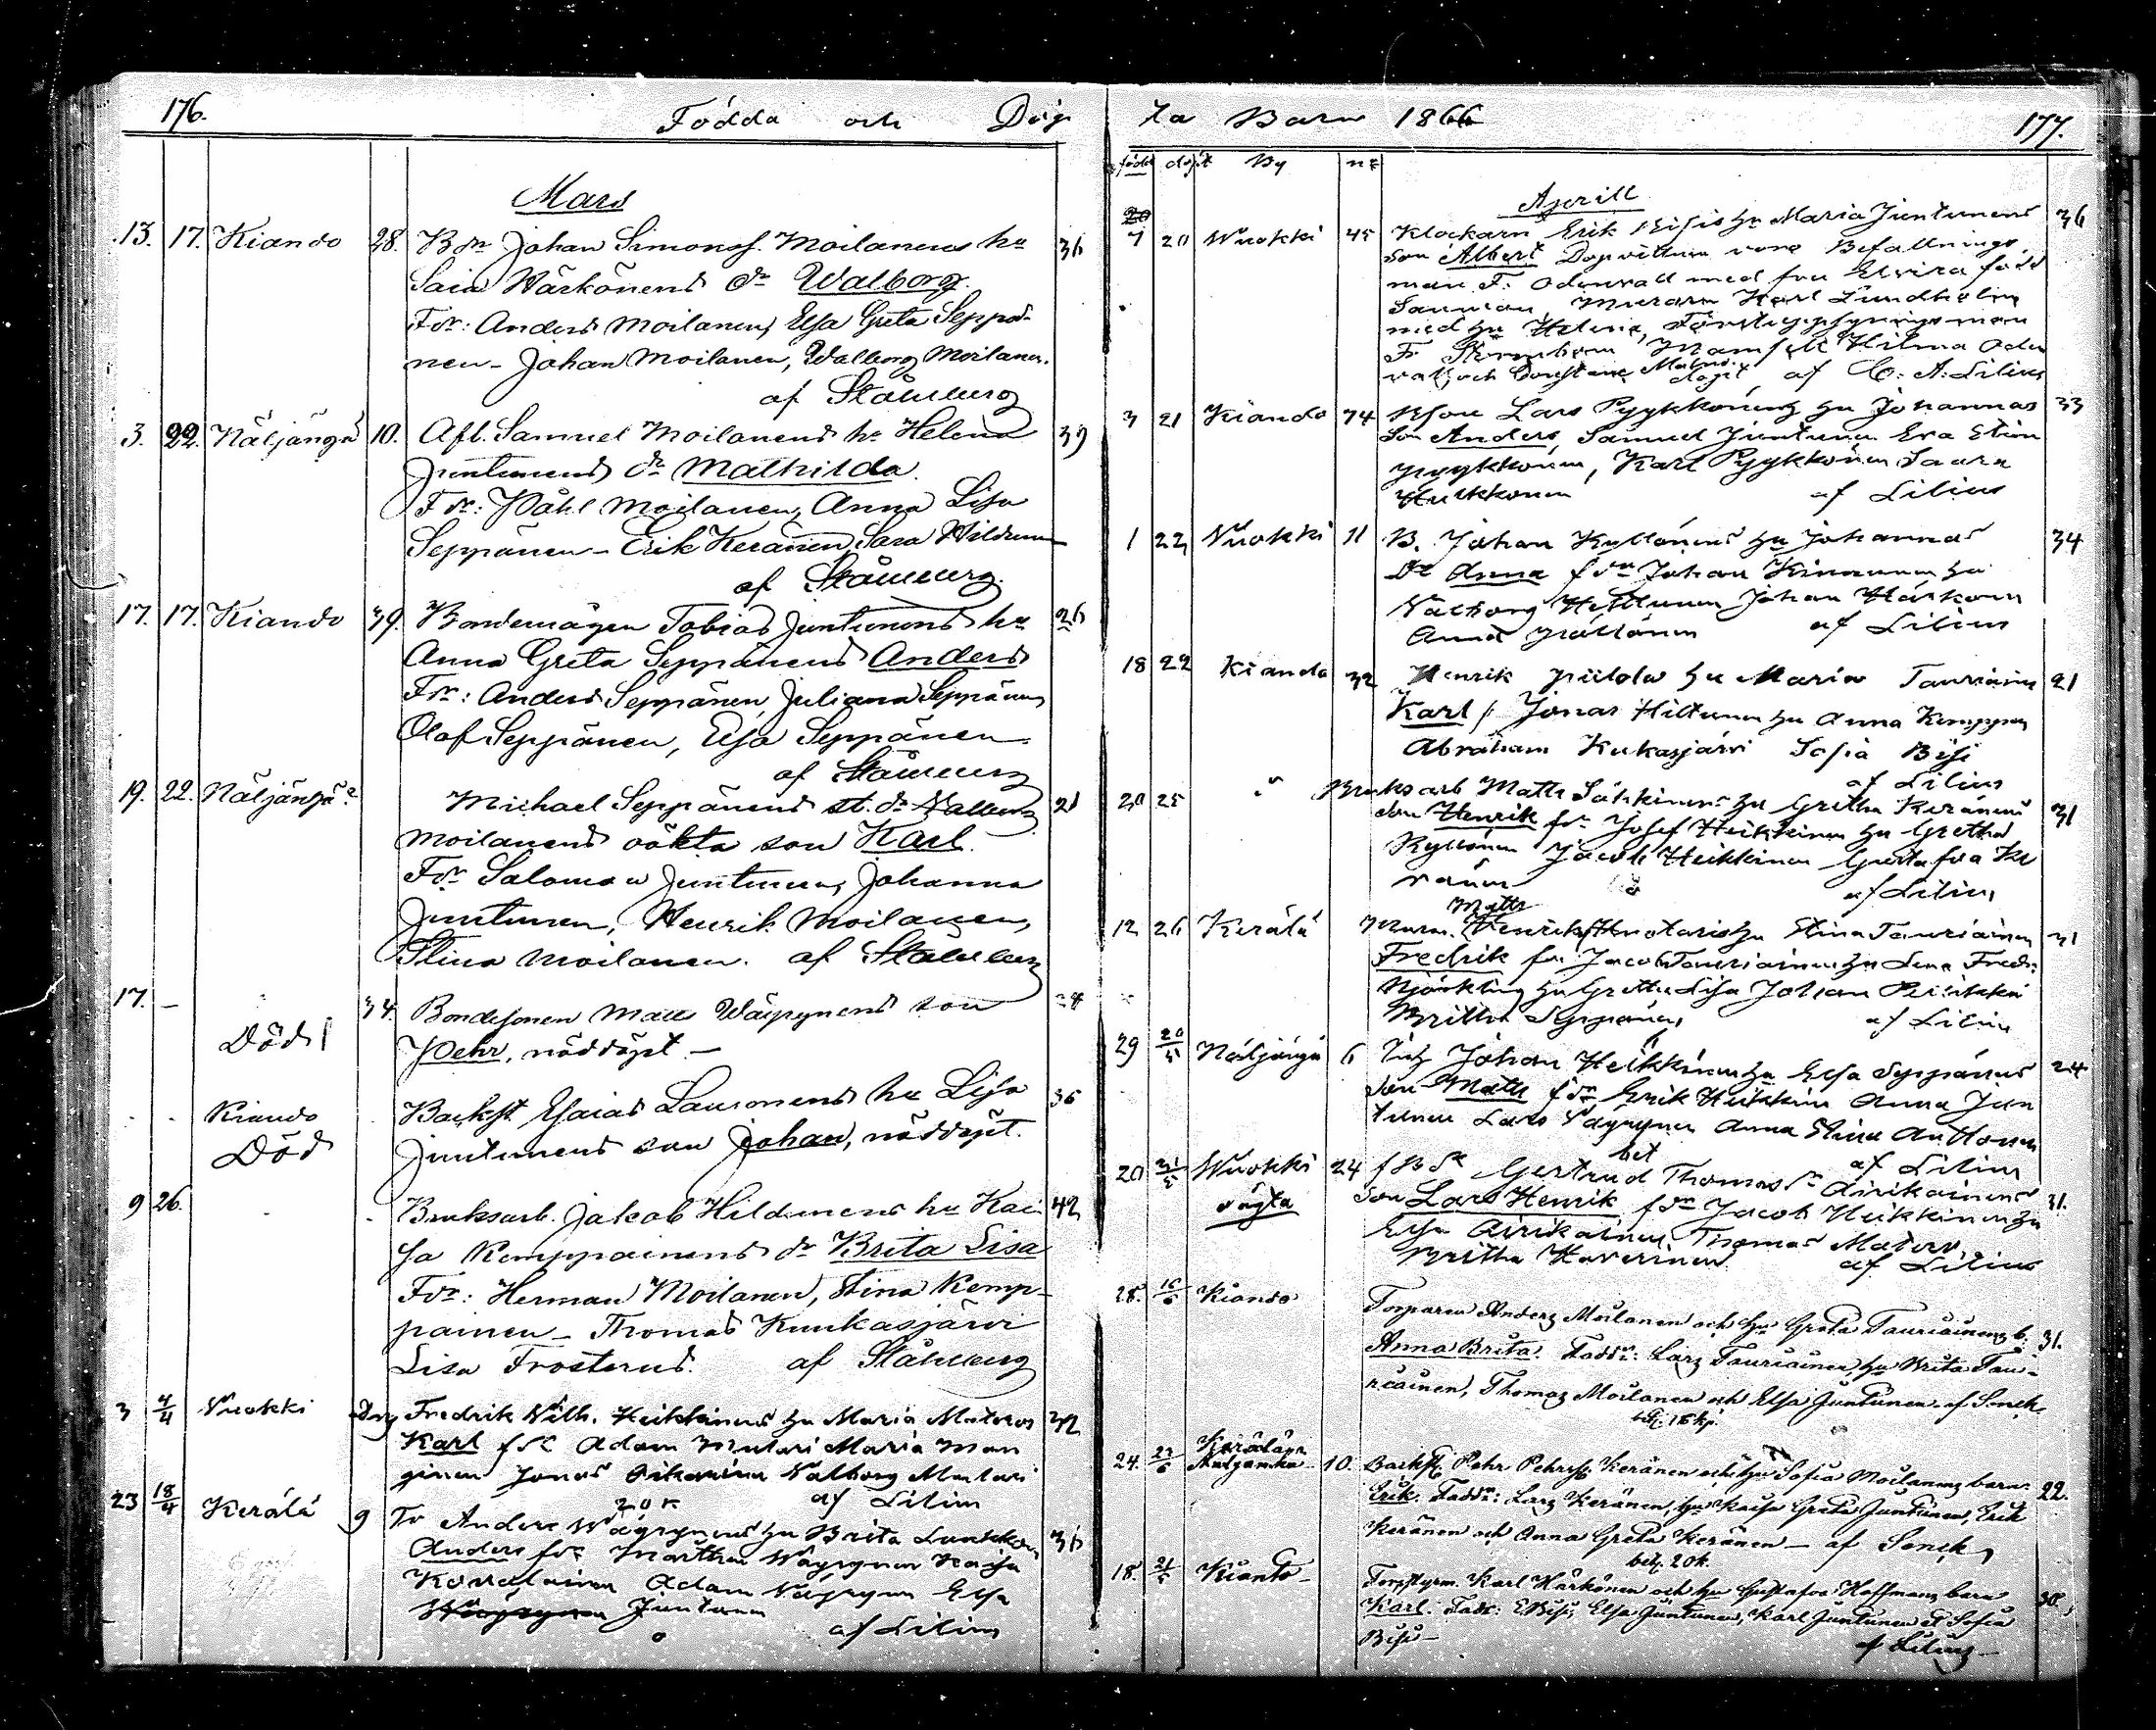 176.
Födda och Döp
Mars
13. 17. Kiando 28. Bdn Johan Simonss. Moilanens hu 36
Saia Wärkönens dr Walborg.
Fdr: Anders Moilanen, Elsa Greta Seppä-
nen - Johan Moilanen, Walborg Moilanen.
af Ståhlberg
3. 22. Näljängä 10. Afl. Samuel Moilanens hr Helena 39
Juntunens dr Mathilda.
Fdr: Påhl Moilanen, Anna Lisa
Seppänen - Erik Keränen, Sara Hildunen
af Ståhlberg.
17. 17. Kiando 39. Bondemågen Tobias Juntunens hu 26
Anna Greta Seppänens Anders
Fdr: Anders Seppänen, Juliana Seppänen
Olof Seppänen, Elsa Seppänen.
af Ståhlberg
19. 22. Näljängä Michael Seppänens st. dr Walborg 21
Moilanens oäkta son Karl.
Fdr Salomon Juntunen, Johanna
Juntunen, Henrik Moilanen,
Stina Moilanen. af Ståhlberg
17. - 34. Bondesonen Matts Wäyrynens son
Död Pehr, nöddöpt -
Kiando Backst. Esaias Lauronens hu Lisa 35
Död Juntunens son Johan, nöddöpt.
9 26. Bruksarb. Jakob Hildunens hu Kai 42
sa Kemppainens dr Brita Lisa
Fdr: Herman Moilanen, Stina Kemp-
painen - Thomas Kuukasjärvi
Lisa Frosterus. af Ståhlberg
3 4/4 Vuokki Fredrik Wilh. Heikkinens hu Maria Materos 32
Karl fdr Adam Mulari Maria Man
ginen Jonas Valborg Mulari
af Lilius
23 18/4 Kerälä 9 To Anders Wäyrynens hu Brita Lukkonen 36
20 k
Anders fdr Märtha Wäyrynen Kaisa
Kovalainen Adam Väyrynen Elsa
Wäyrynen Juntunen
af Lilius
ta Barn 1866
177.
född döpt By no
Aprill
20
7 20 Wuokki 45 Klockarn Erik Bisis hu Maria Juntunens 36
son Albert Dopvittnen vore Befallnings
man F. Odenvall med fru Elvira född
Sanmau Muraren Karl Lundholm
med hu Helena, Förstuppsyningsman
F. Mamsell Hilma Oden
vall och Constans
döpt af C. A. Lilius
3 21 Kiando 74 Bson Lars Pyykkönens hu Johannas 33
son Anders, Samuel Juntunen Eva Stina
Pyykkönen, Karl Pyykkönen Saara
Hulkkonen af Lilius
1 22 Vuokki 11 B. Johan Kyllönens hu Johannas 34
Dr Anna fdr Johan Kinnunen hu
Valborg Heltunen Johan Härkönen
Anna Kyllönen af Lilius
18 22 Kiando 32 Henrik Piilola hu Maria Tauriainen 21
Karl f Jonas Hiltunen hu Anna Kemppainen
Abraham Kukasjärvi Sofia Bisi
af Lilius
20 25 " Bruksarb Matts Säkkinens hu Gretha Keränens 31
son Henrik fdr Josef Heikkinen hu Gretha
Kyllönen Jacob Heikkinen Gustafva Ke
ränen af Lilius
Matts
12 26 Kerälä Murm. Henrik Huotaris hu Stina Tauriainen 31
Fredrik fdr Jacob Tauriainen hu Lena Fredr.
Björkling hu Gretha Lisa Johan Pesikkä
Britha Seppänen af Lilius
29 20/5 Näljängä 6 Johan Heikkinens hu Elsa Seppänens 24
son Matts fdr Erik Heikkinen Anna Jun
tunen Lars Väyrynen Anna Stina Anttonen
bet af Lilius
20 21/5 Wuokki 24 f B dr Gertrud Thomasdr Airikainens
oägta son Lars Henrik fdr Jacob Heikkinen hu 31.
Elsa Airikainen, Thomas Matero
Britha Haverinen af Lilius
28. 16/6 Kiando Torparen Anders Moilanen och hu Greta Tauriainens b. 31.
Anna Brita. Faddr: Lars Tauriainen, hu Brita Tau-
riainen, Thomas Moilanen och Elsa Juntunen. af Sonck.
bet. 18 kp.
24. 23/6 Kerälä 10. Backst. Pehr Pehrss. Keränen och hu Sofia Moilanens barn 22.
Erik. Faddr: Lars Keränen, hu Kaisa Greta Juntunen, Erik
Keränen och Anna Greta Keränen - af Sonck
bet. 20 k.
18. 21/5 Kianto - Torpstyrm. Karl Härkönen och hu Gustafva Hoffmans barn 30.
Karl. Fadr: E Bisi, Elsa Juntunen, Karl Juntunen & Sofia
Bisi - af Lilius -